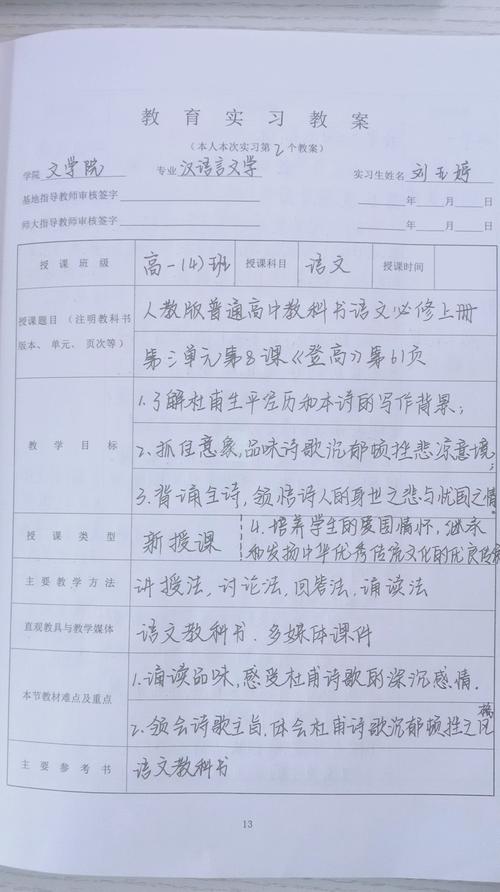 教育实习教案
(本人本次实习第2个教案)
学院 文学院 专业 汉语言文学 实习生姓名 刘玉婷
基地指导教师审核签字 年 月 日
师大指导教师审核签字 年 月 日
授课班级 高一(4)班 授课科目 语文 授课时间
授课题目(注明教科书版本、单元、页次等) 人教版普通高中教科书语文必修上册
第三单元第8课《登高》第61页
教学目标 1.了解杜甫生平经历和本诗的写作背景;
2.抓住意象,品味诗歌沉郁顿挫悲凉意境;
3.背诵全诗,领悟诗人的身世之悲与忧国之情
授课类型 新授课 4.培养学生的爱国情怀,继承
和发扬中华优秀传统文化的优良传统
主要教学方法 讲授法,讨论法,回答法,诵读法
直观教具与教学媒体 语文教科书.多媒体课件
本节教材难点及重点 1.诵读品味,感受杜甫诗歌的深沉感情.
2.领会诗歌主旨,体会杜甫诗歌沉郁顿挫之风
主要参考书 语文教科书
13